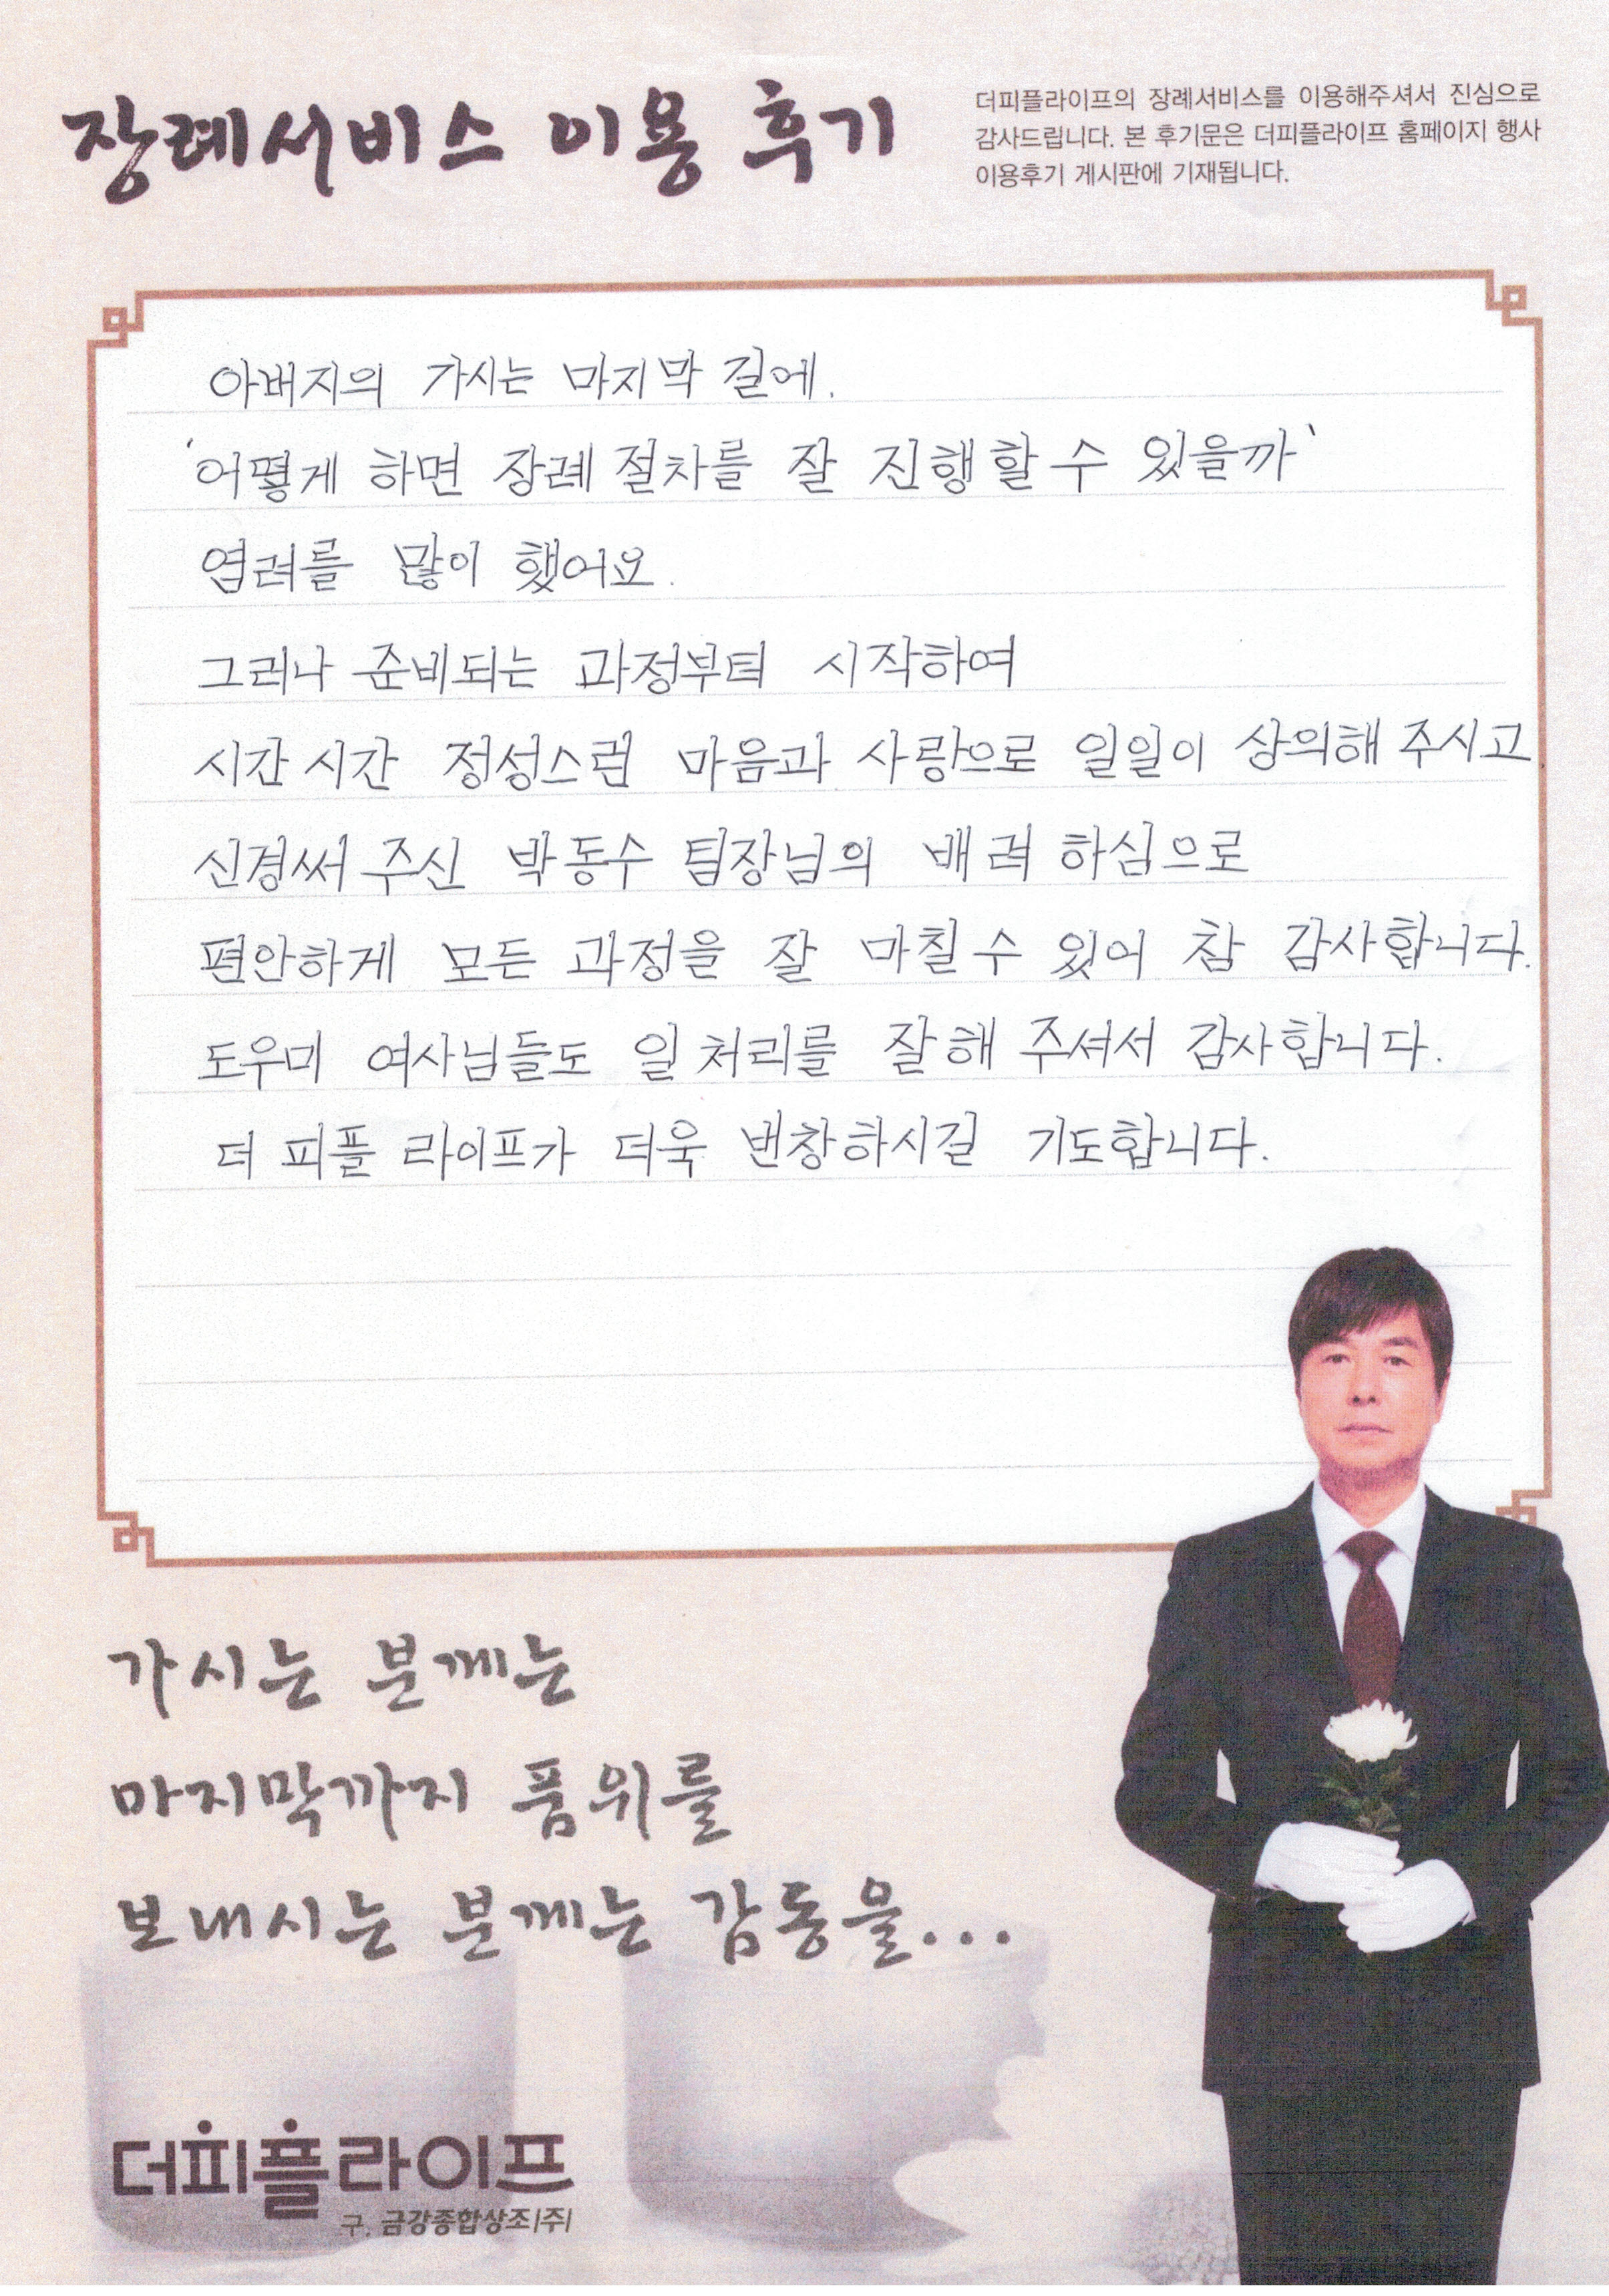 장례서비스 이용 후기
더피플라이프의 장례서비스를 이용해주셔서 진심으로
감사드립니다. 본 후기문은 더피플라이프 홈페이지 행사
이용후기 게시판에 기재됩니다.
아버지의 가시는 마지막 길에.
'어떻게 하면 장례 절차를 잘 진행할 수 있을까'
염려를 많이 했어요.
그러나 준비되는 과정부터 시작하여
시간 시간 정성스런 마음과 사랑으로 일일이 상의해 주시고,
신경써 주신 박동수 팀장님의 배려 하심으로
편안하게 모든 과정을 잘 마칠 수 있어 참 감사합니다.
도우미 여사님들도 일 처리를 잘 해 주셔서 감사합니다.
더 피플 라이프가 더욱 번창하시길 기도합니다.
가시는 분께는
마지막까지 품위를
보내시는 분께는 감동을...
더피플라이프
구. 금강종합상조(주)